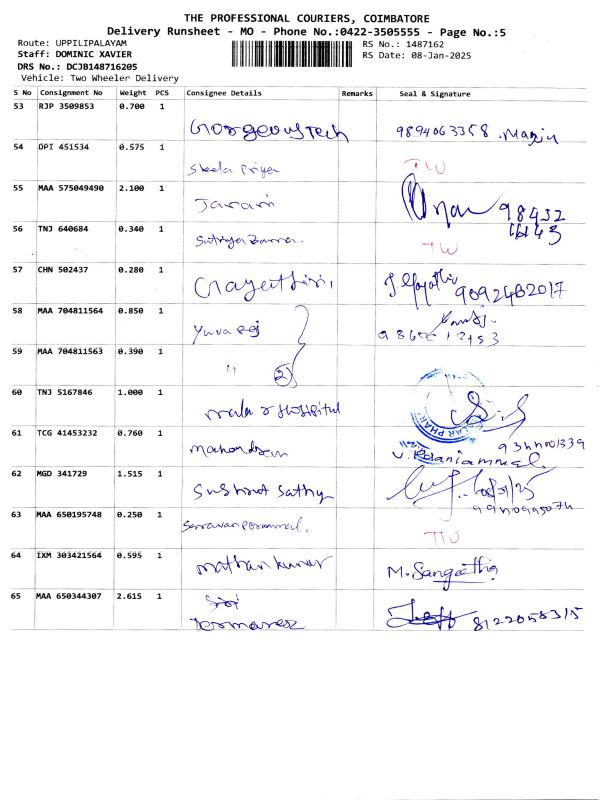 THE PROFESSIONAL COURIERS, COIMBATORE
Delivery Runsheet - MO - Phone No.:0422-3505555 - Page No.:5
Route: UPPILIPALAYAM RS No.: 1487162
Staff: DOMINIC XAVIER RS Date: 08-Jan-2025
DRS No.: DCJB148716205
Vehicle: Two Wheeler Delivery
S No Consignment No Weight PCS Consignee Details Remarks Seal & Signature
53 RJP 3509853 0.700 1
Gorgeous Tech 9894063358
54 DPI 451534 0.575 1
Sheela Priya TW
55 MAA 575049490 2.100 1
Jairam 98432
56 TNJ 640684 0.340 1
TW
57 CHN 502437 0.280 1
Gayathiri 9092482017
58 MAA 704811564 0.850 1
Yuvaraj
59 MAA 704811563 0.390 1
" 2
60 TNJ 5167846 1.000 1
Hospital
61 TCG 41453232 0.760 1
V. Palaniammal.
62 MGD 341729 1.515 1
Sushant Sathy
63 MAA 650195748 0.250 1
TW
64 IXM 303421564 0.595 1
Mathan kumar M. Sangeetha
65 MAA 650344307 2.615 1
8122058315